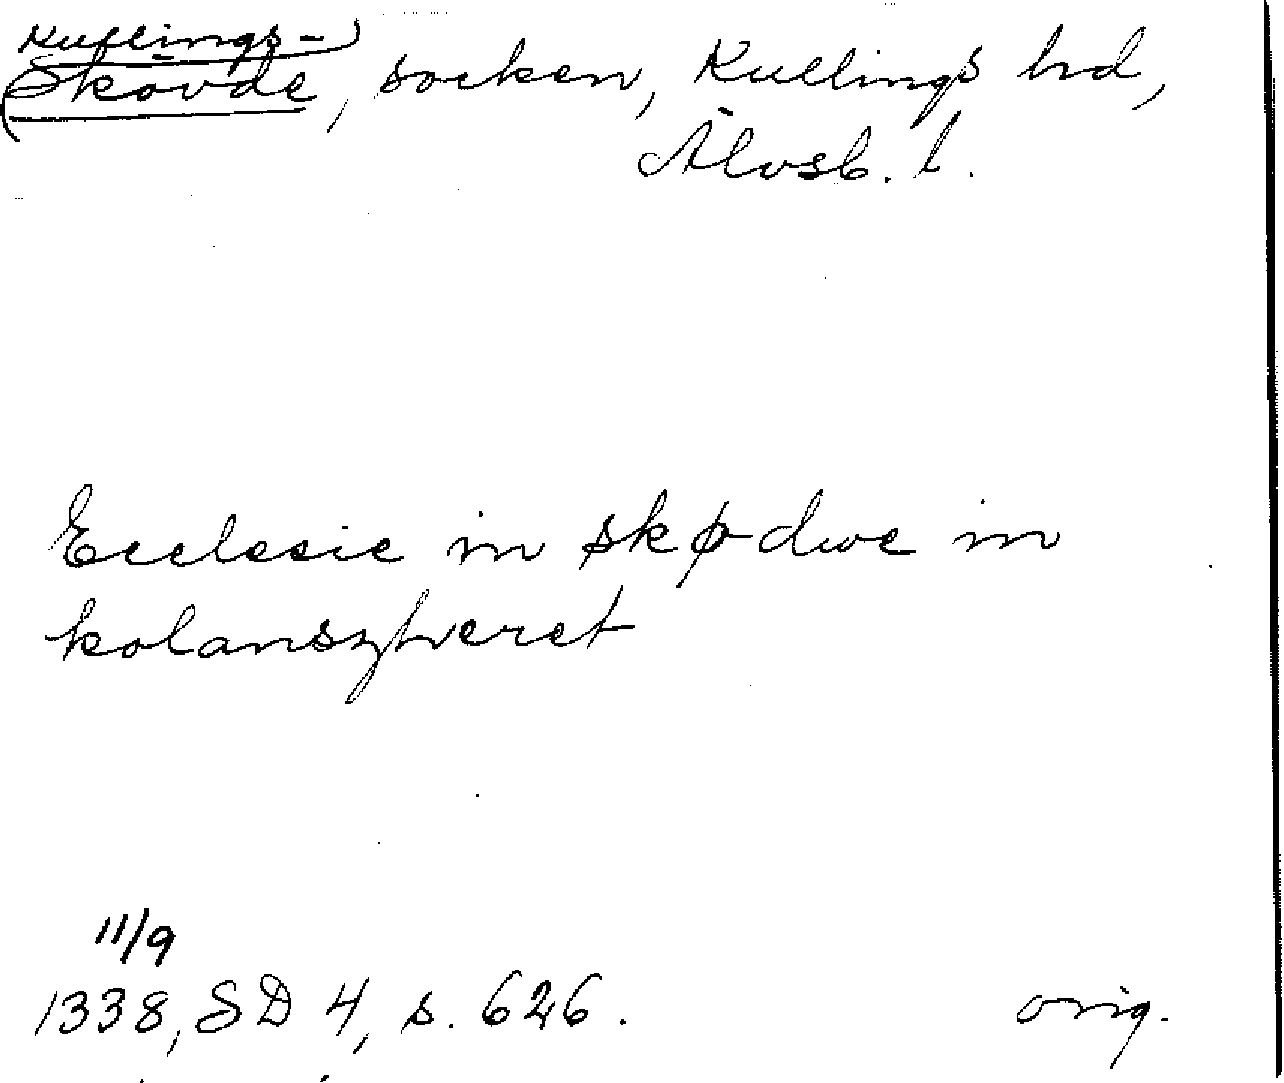 Kullings-
Skövde, socken, Kullings hd,
Älvsb. l.
Ecclesie in skødwe in
kolanszhveret
11/9
1338, SD 4, s. 626.
orig.